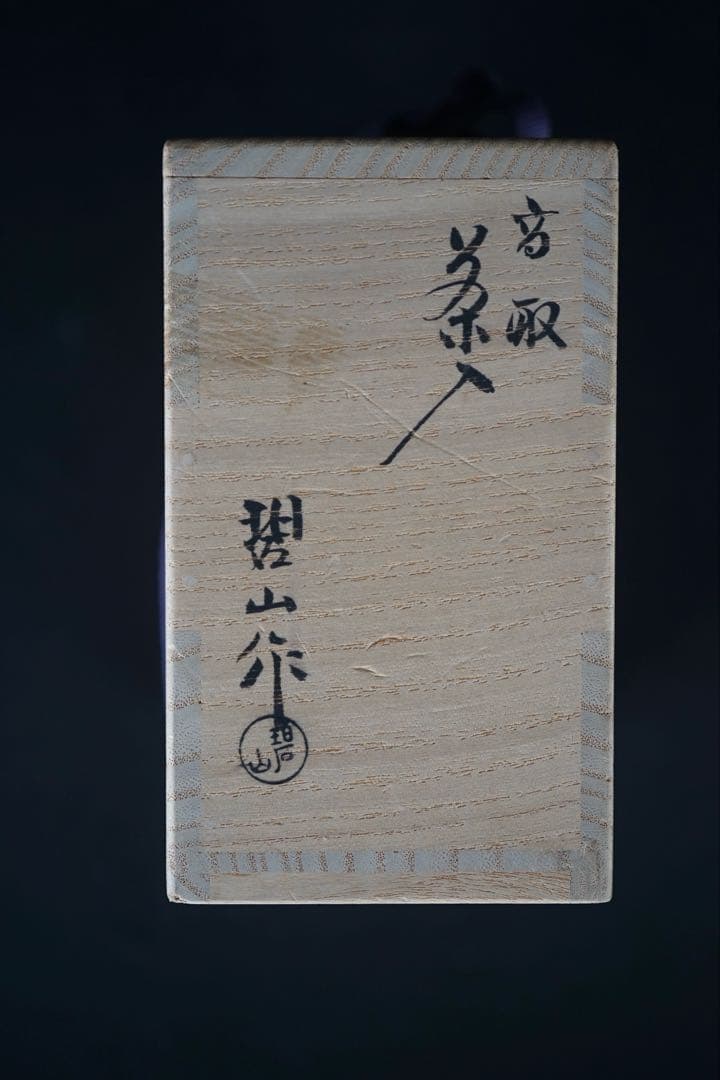 高取
茶入
碧山作
碧山